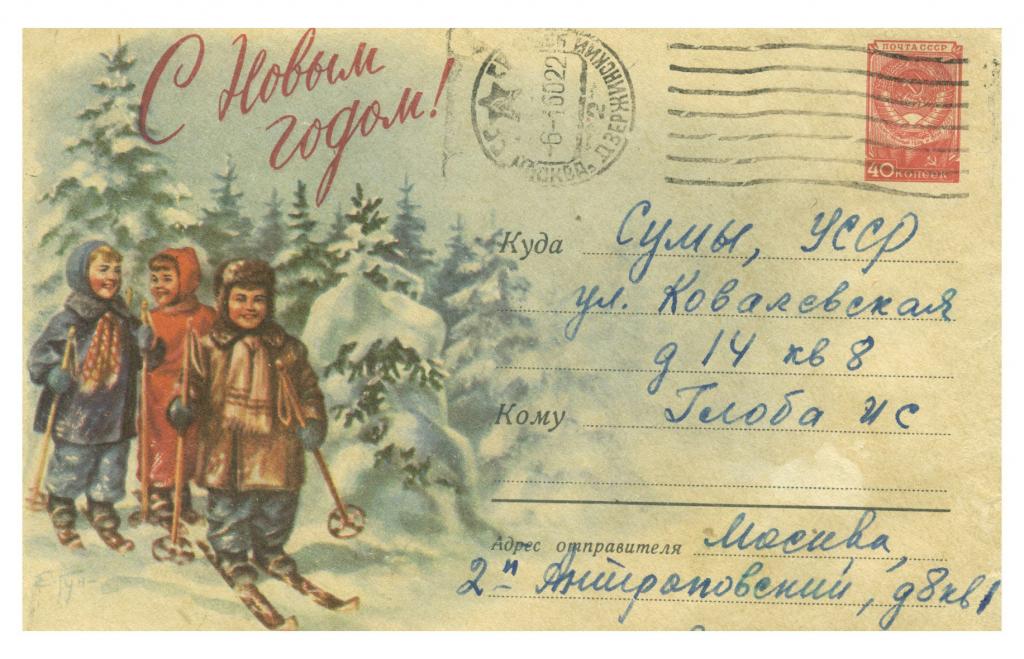 С Новым
годом!
ПОЧТА СССР
40 КОПЕЕК
МОСКВА, ДЗЕРЖИНСКИЙ
-6-16022
Куда Сумы, УССР
ул. Ковалевская
д 14 кв 8
Кому Глоба ИС
Адрес отправителя Москва,
2-й Антроповский, д8кв1